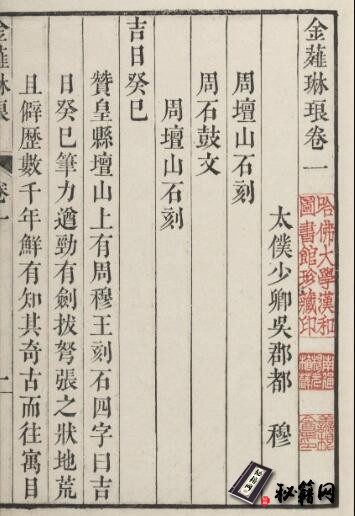 金薤琳琅卷一
太僕少卿吳郡都 穆
周壇山石刻
周石鼓文
周壇山石刻
吉日癸巳
贊皇縣壇山上有周穆王刻石四字曰吉
日癸巳筆力遒勁有劍拔弩張之狀地荒
且僻歷數千年鮮有知其奇古而往寓目
金薤琳琅
卷一
一
哈佛大學漢和
圖書館珍藏印
秘籍网